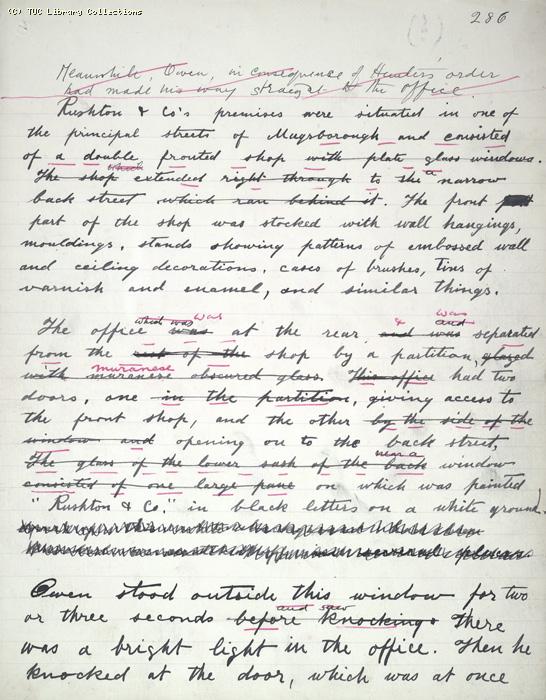 (C) TUC Library Collections
286
Meanwhile, Owen, in consequence of Hunter's order
had made his way straight to the office.
Rushton & Co's premises were situated in one of
the principal streets of Mugsborough and consisted
of a double fronted shop with plate glass windows.
which
The shop extended right through to the narrow
back street which ran behind it. The front part
part of the shop was stocked with wall hangings,
mouldings, stands showing patterns of embossed wall
and ceiling decorations, cases of brushes, tins of
varnish and enamel, and similar things.
which was was & was and
The office was at the rear and was separated
from the rest of the shop by a partition, glazed
muranese
with muranese obscured glass. This office had two
doors, one in the partition, giving access to
the front shop, and the other by the side of the
window and opening on to the back street,
near a
The glass of the lower sash of the back window
consisted of one large pane on which was painted
"Rushton & Co." in black letters on a white ground.
Owen stood outside this window for two
and saw
or three seconds before knocking. There
was a bright light in the office. Then he
knocked at the door, which was at once